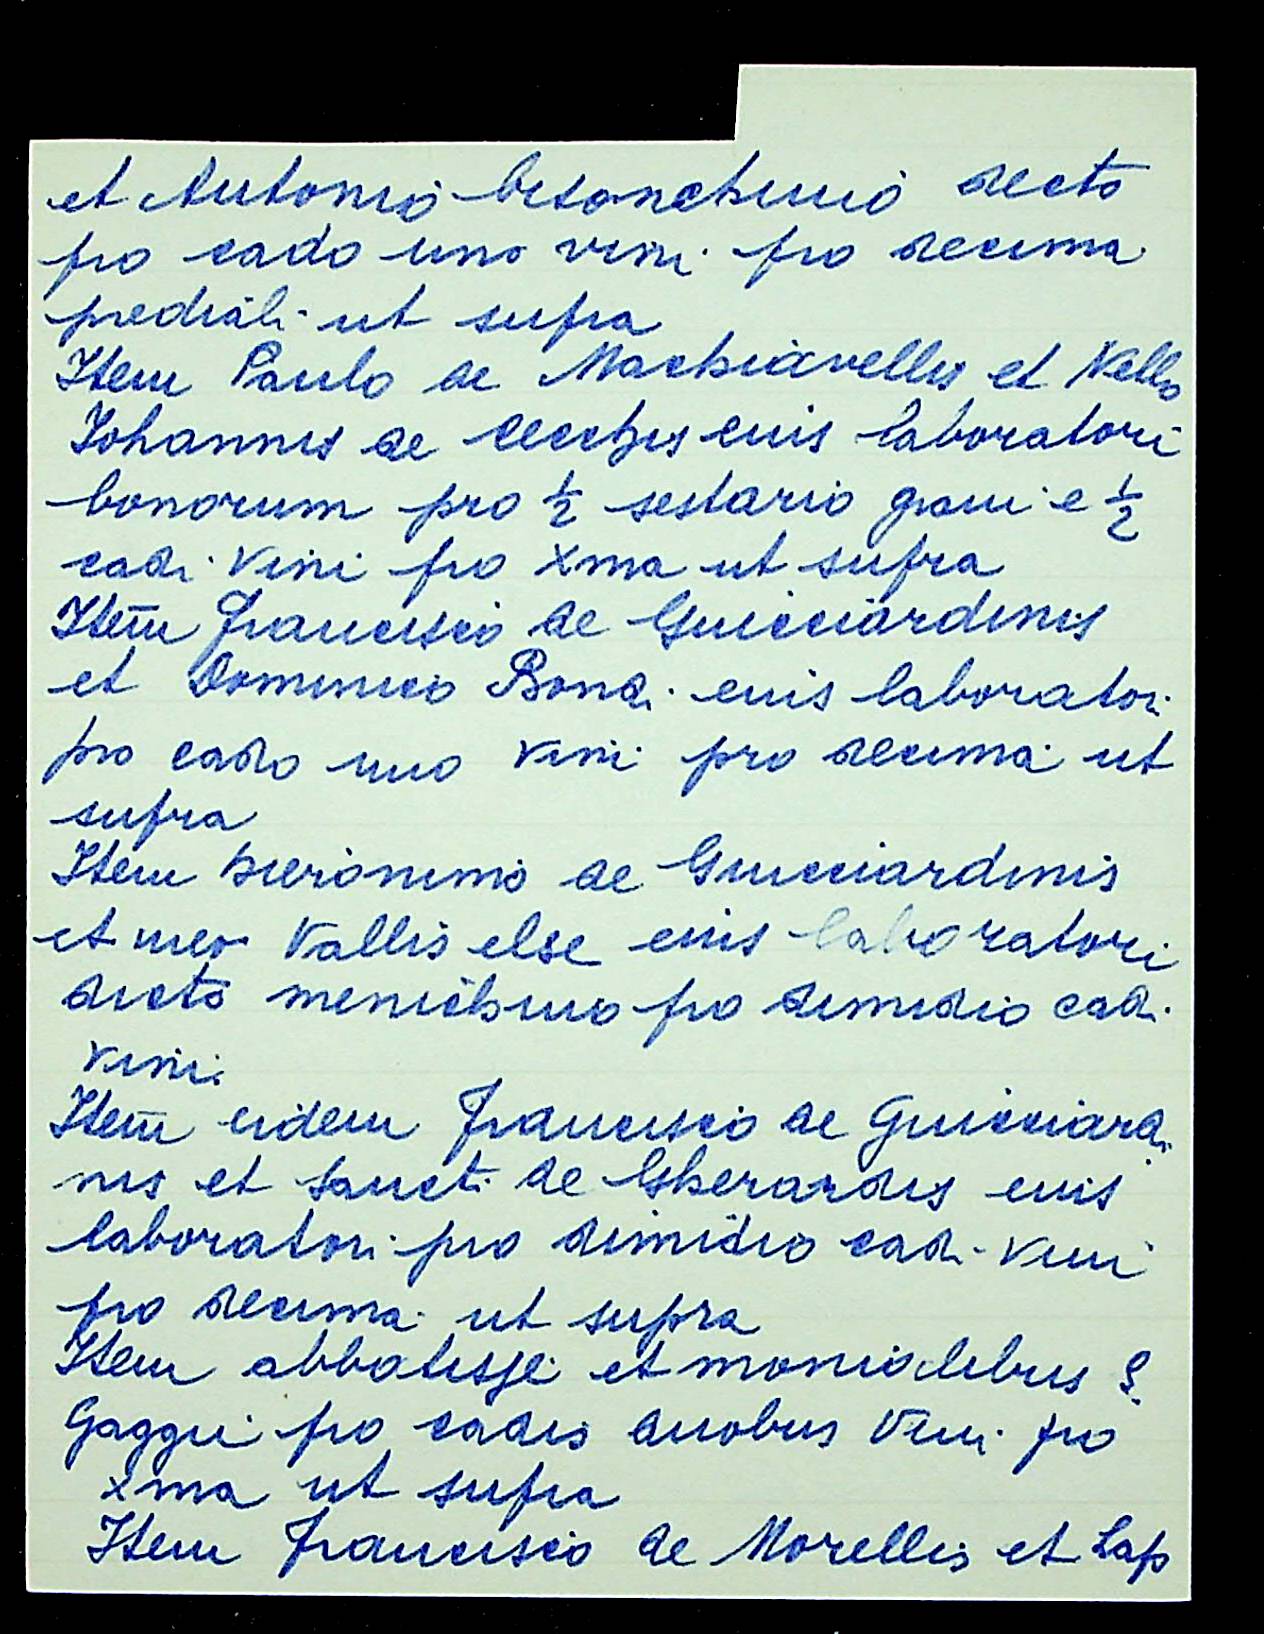 et Antonio besonchino decto
pro cado uno vini pro decima
prediali ut supra
Item Paulo de Machiavellis et Nello
Iohannis de Cecchis euis laboratori
bonorum pro ½ sestario grani e ½
cadi vini pro xma ut supra
Item Francisco de Guicciardinis
et Dominico Bondi euis laboratori
pro cado uno vini pro decima ut
supra
Item hieronimo de Guicciardinis
et meo Vallis else euis laboratori
dicto menichino pro dimidio cadi
vini.
Item eidem Francisco de Guicciardi
nis et Sancti de Gherardis euis
laboratori pro dimidio cadi vini
pro decima ut supra
Item abbatisse et monialibus S.
Gaggii pro cadis duobus vini pro
xma ut supra
Item Francisco de Morellis et Lap